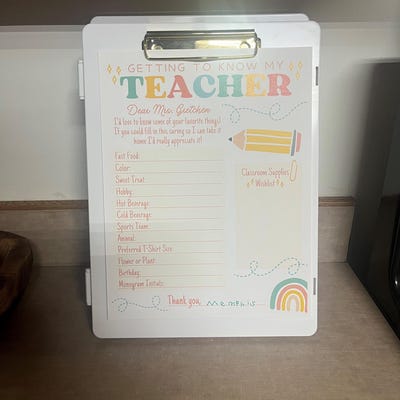 GETTING TO KNOW MY
TEACHER
Dear Mrs. Gretchen
I'd love to know some of your favorite things!
If you could fill in this caring so I can take it
home I'd really appreciate it!
Fast Food:
Color:
Sweet Treat:
Hobby:
Hot Beverage:
Cold Beverage:
Sports Team:
Animal:
Preferred T-Shirt Size:
Flower or Plant:
Birthday:
Monogram Initials:
Classroom Supplies
Wishlist
Thank you, Memphis